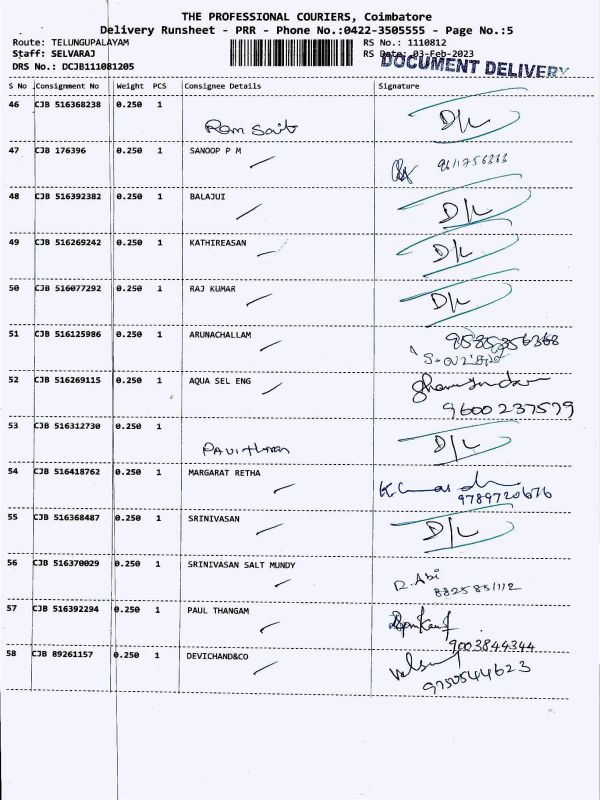 THE PROFESSIONAL COURIERS, Coimbatore
Delivery Runsheet - PRR - Phone No.:0422-3505555 - Page No.:5
Route: TELUNGUPALAYAM RS No.: 1110812
Staff: SELVARAJ RS Date: 03-Feb-2023
DOCUMENT DELIVERY
DRS No.: DCJB111081205
S No Consignment No Weight PCS Consignee Details Signature
46 CJB 516368238 0.250 1 Ram Sait D/L
47 CJB 176396 0.250 1 SANOOP P M
48 CJB 516392382 0.250 1 BALAJUI D/L
49 CJB 516269242 0.250 1 KATHIREASAN D/L
50 CJB 516077292 0.250 1 RAJ KUMAR D/L
51 CJB 516125986 0.250 1 ARUNACHALLAM
52 CJB 516269115 0.250 1 AQUA SEL ENG
9600237579
53 CJB 516312730 0.250 1 D/L
54 CJB 516418762 0.250 1 MARGARAT RETHA
9789720676
55 CJB 516368487 0.250 1 SRINIVASAN D/L
56 CJB 516370029 0.250 1 SRINIVASAN SALT MUNDY R. Abi
8825851112
57 CJB 516392294 0.250 1 PAUL THANGAM
9003844344
58 CJB 89261157 0.250 1 DEVICHAND&CO
9750544623